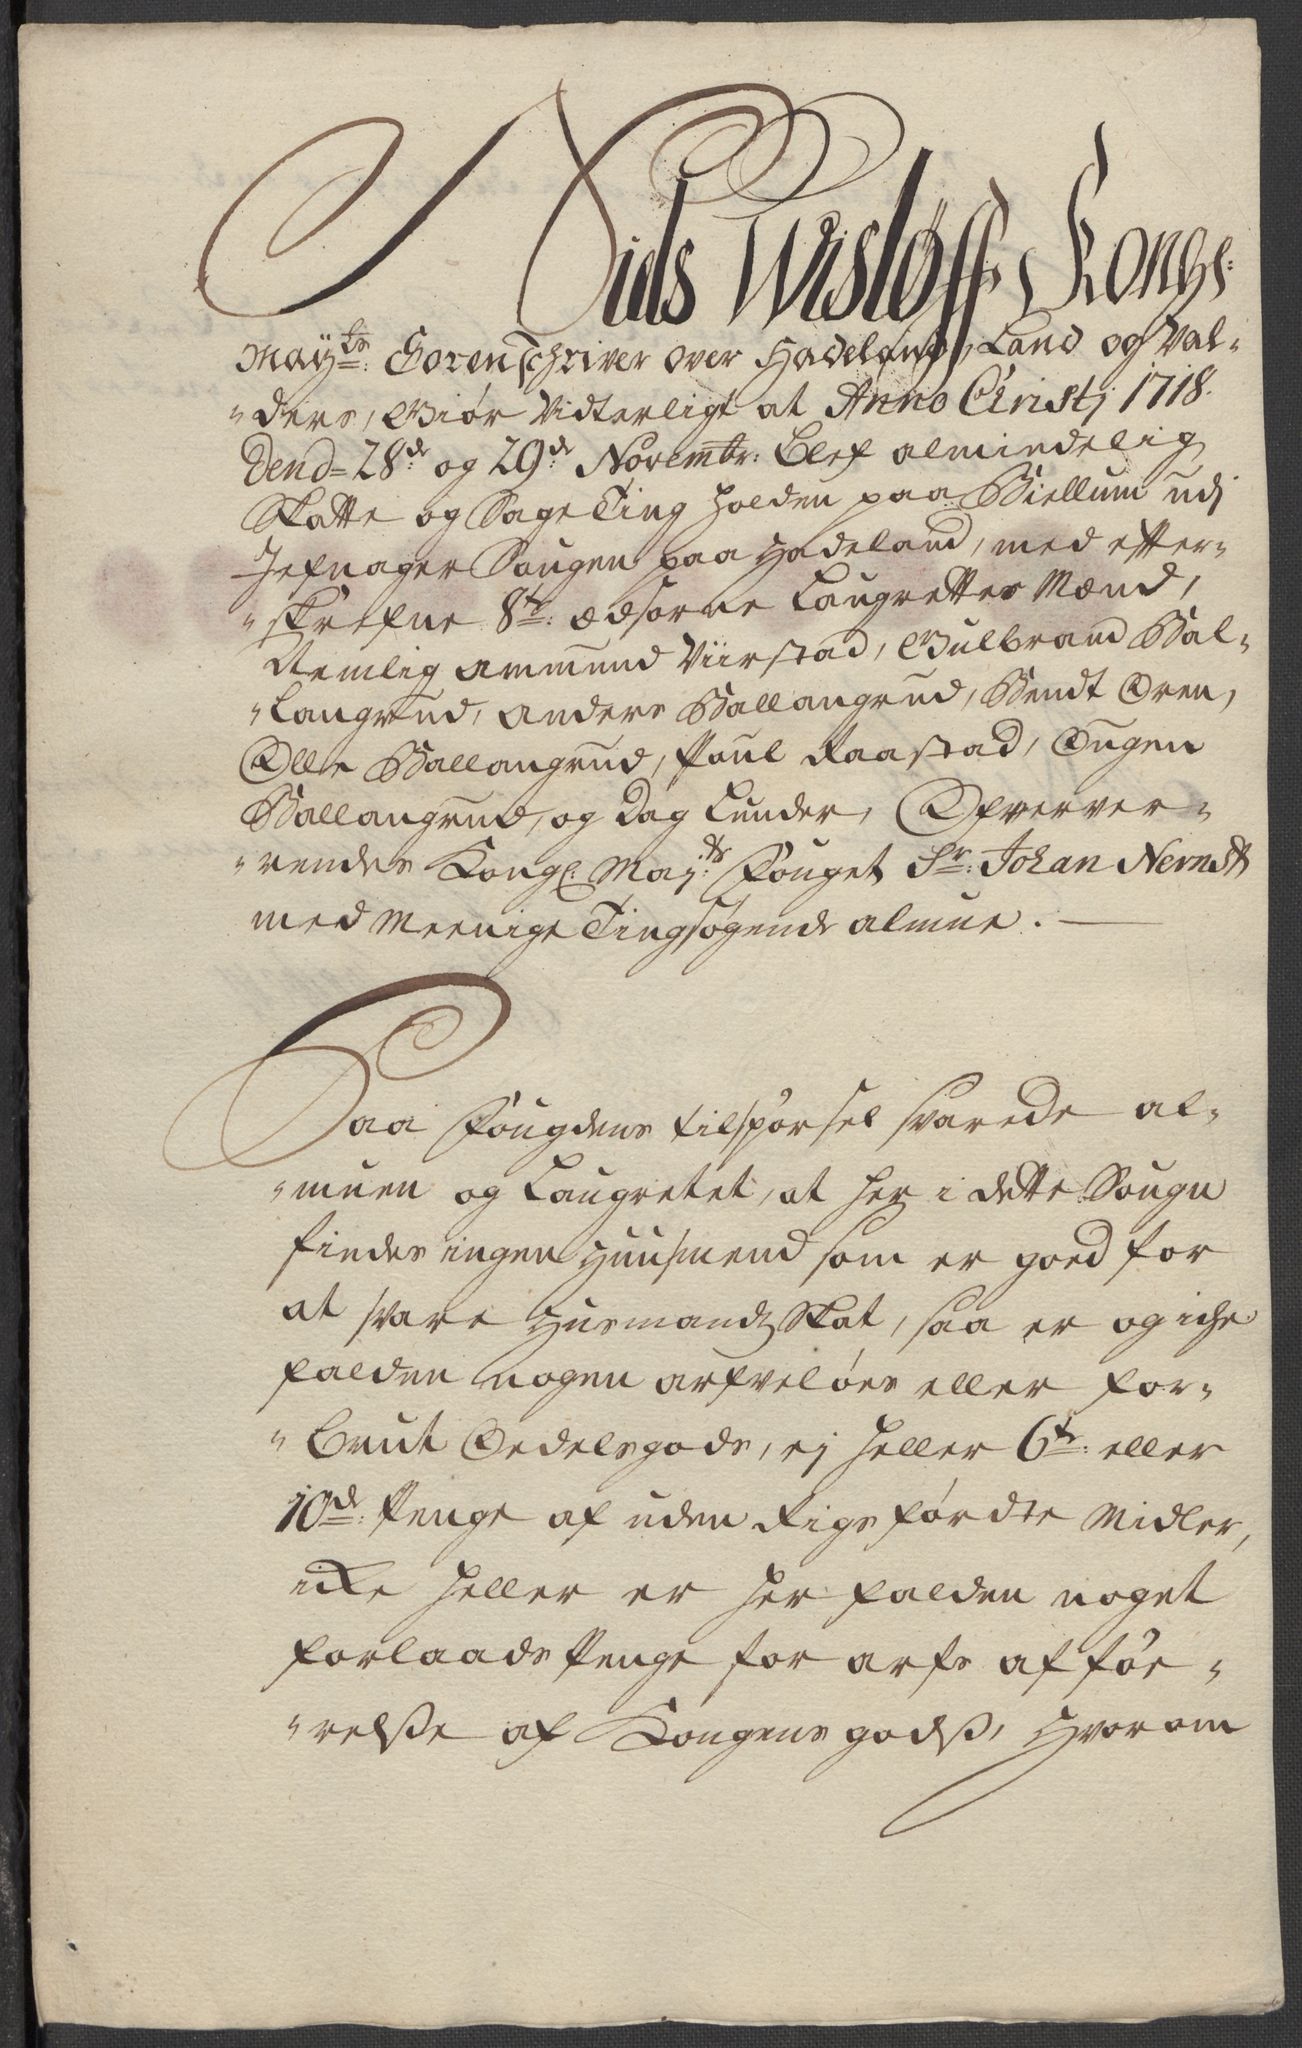 Niels Wisløff Kongl:
May.ts: Sorenschriver over Hadeland, Land og Val-
-ders, Giør Vidterligt at Anno Christj 1718.
Dend= 28de og 29de Novembr: blef almindelig
Skatte og Sage Ting holden paa Biellum udj
Jefnager Sougen paa Hadeland, med efter-
-skrefne 8te: Edsorne Laugrettes Mænd,
Nemlig Ammund Viirstad, Gulbrand Bal-
-langrud, Anders Ballangrud, Bendt Oren,
Olle Ballangrud, Poul Raastad, Ougen
Ballangrud, og Dag Lunder, Ofverver-
-rendes Kongl. May:ts Fouget Sr: Johan Nerndt
med Meenige Tingsøgende almue. —
Paa Fougdens tilspørsel svarede al-
-muen og Laugretet, at her i dette Sougn
findes ingen Huusmend som er goed for
at svare Husmandskat, saa er og iche
falden nogen arfveløes eller for-
-brut Oedelsgods, ej heller 6te: eller
10de: Penge af uden Rigs førdte Midler,
icke heller er her falden noget
forlaads Penge for arfs afføe-
-relsse af Kongens godss, Hvorom